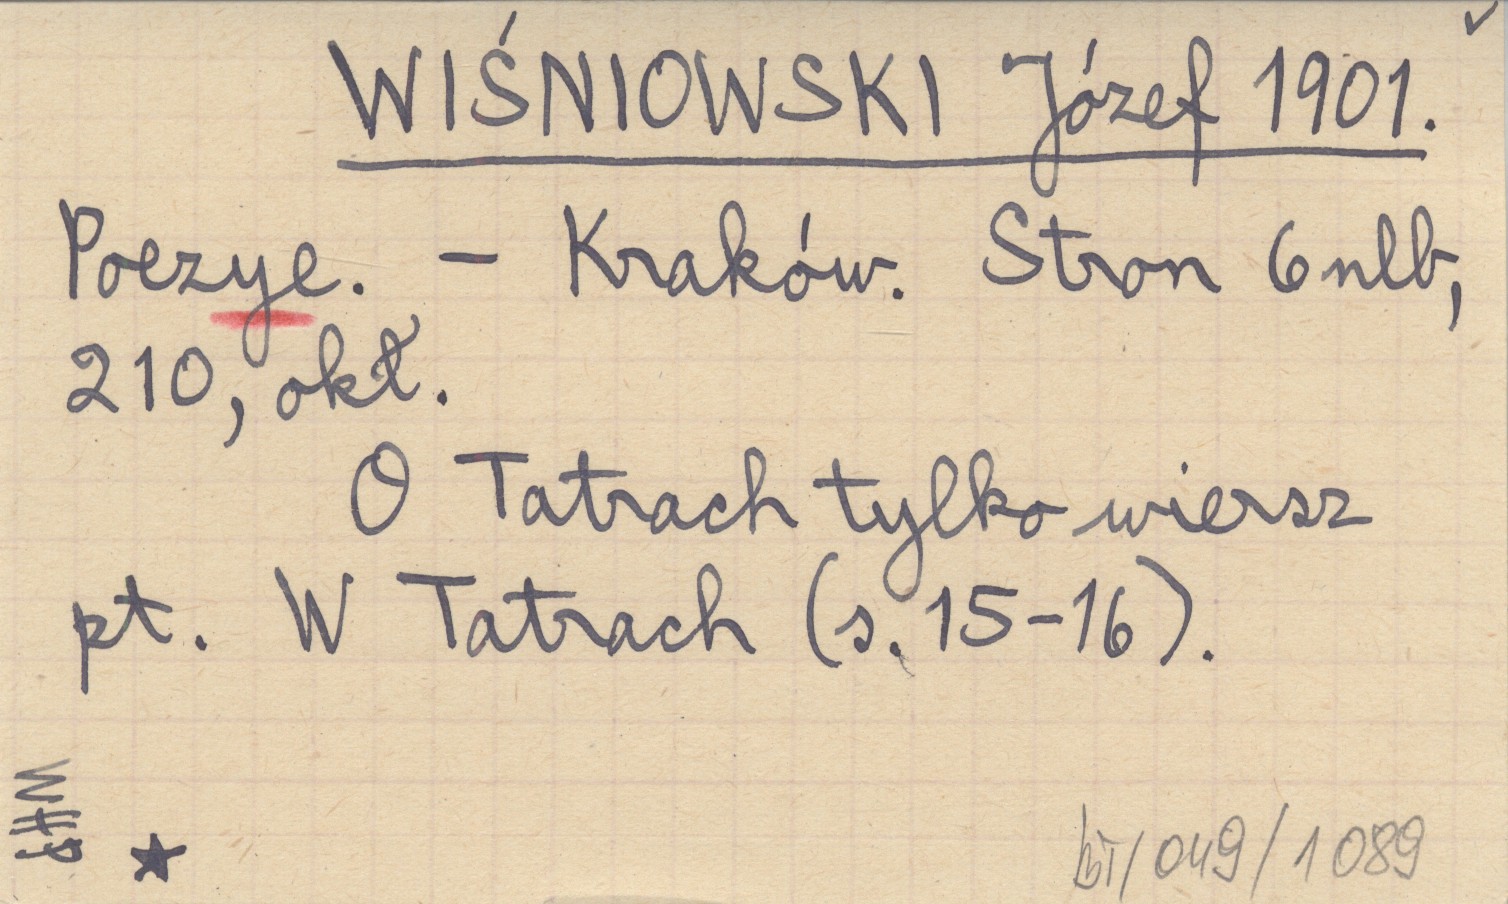 WIŚNIOWSKI Józef 1901.
Poezye. - Kraków. Stron 6 nlb,
210, okł.
O Tatrach tylko wiersz
pt. W Tatrach (s. 15-16).
WHP
bT/049/1089